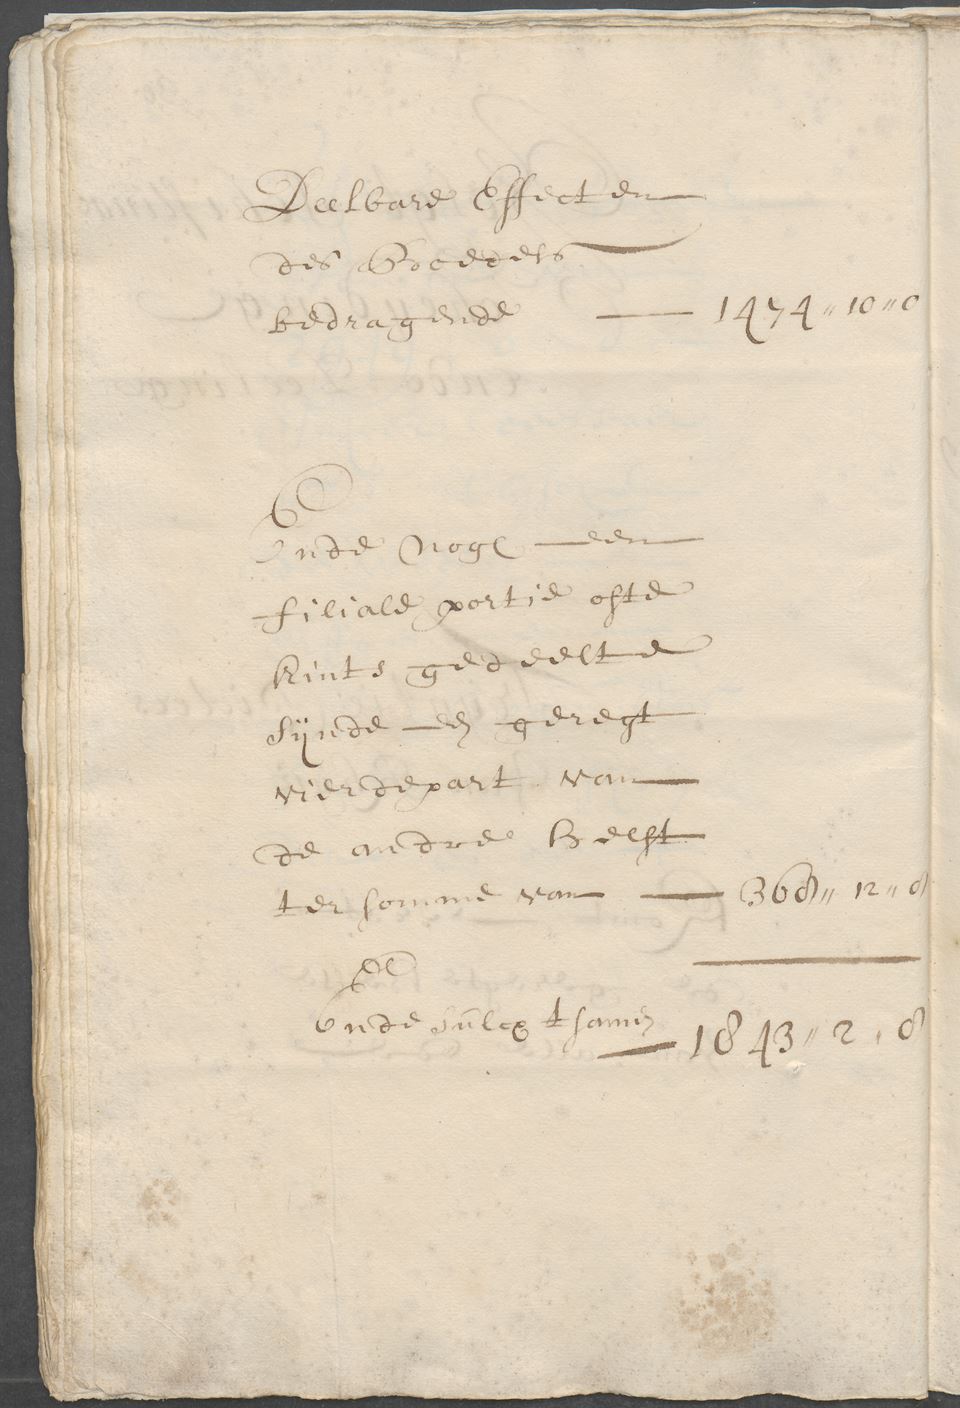 Deelbare Effecten
des Boedels
bedragende — 1474 „ 10 „ 0
Ende nogh een
filiale portie ofte
kints gedeelte
sijnde een geregt
vierdepart van
de andre helft
ter somme van — 368 „ 12 „ 8
Ende sulcx tsamen — 1843 „ 2 „ 8